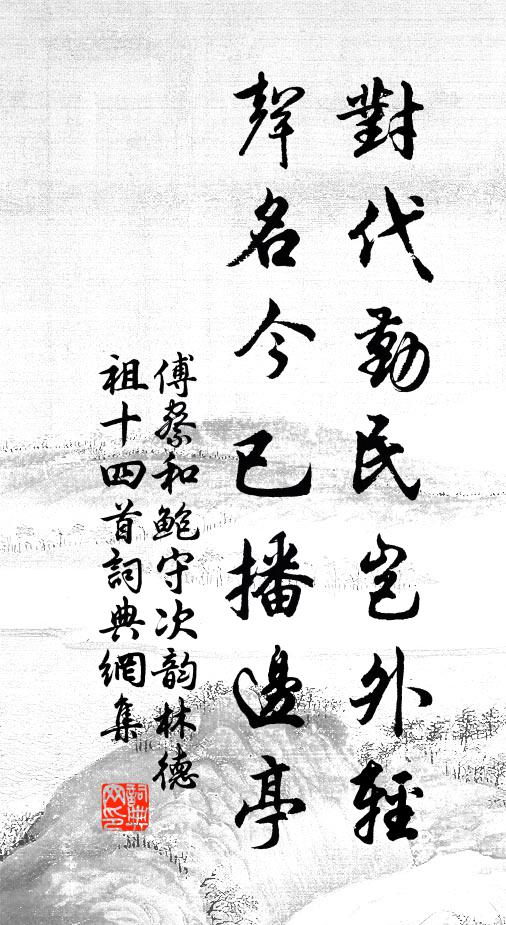 對代勤民豈外輕
聲名今已播邊亭
傅察和鮑守次韵林德
祖十四首詞典網集
詞典網印